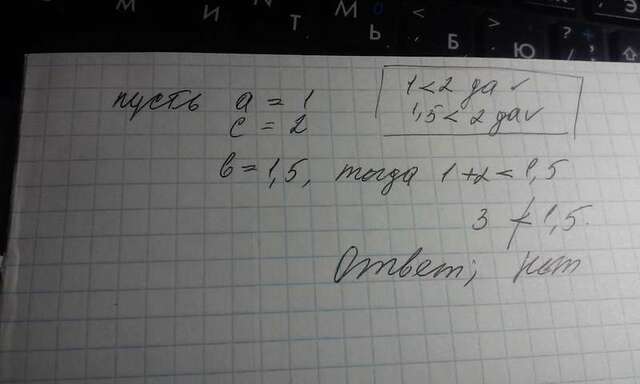 М И Т Ь М О < > Б Ю ? . Э
пусть a = 1
c = 2
1 < 2 да ✓
1,5 < 2 да ✓
в = 1,5, тогда 1 + 2 < 1,5
3 ≮ 1,5.
Ответ; нет